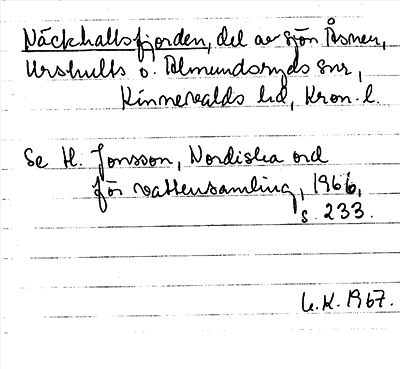 Näckhallsfjorden, del av sjön Åsnen,
Urshults o. Almundsryds snr,
Kinnevalds hd, Kron. l.
Se H. Jonsson, Nordiska ord
för vattensamling, 1966,
s. 233.
U.K. 1967.